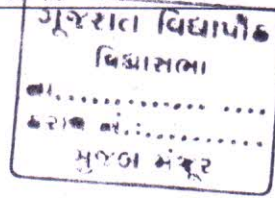 ગૂજરાત વિદ્યાપીઠ
વિદ્યાસભા
તા.................
ઠરાવ નં.:............
મુજબ મંજૂર